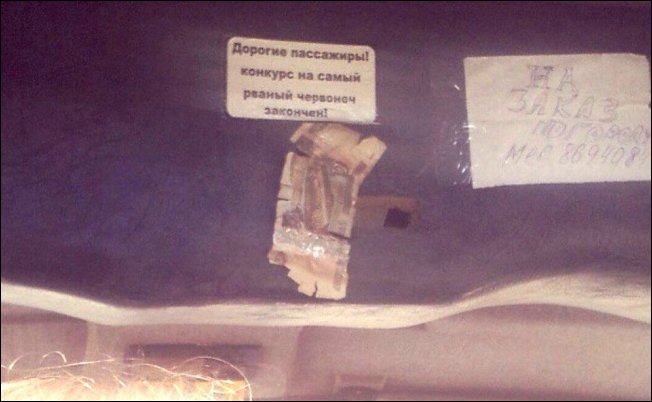 Дорогие пассажиры!
конкурс на самый
рваный червонец
закончен!
НА
ЗАКАЗ
ПО ГОРОДУ